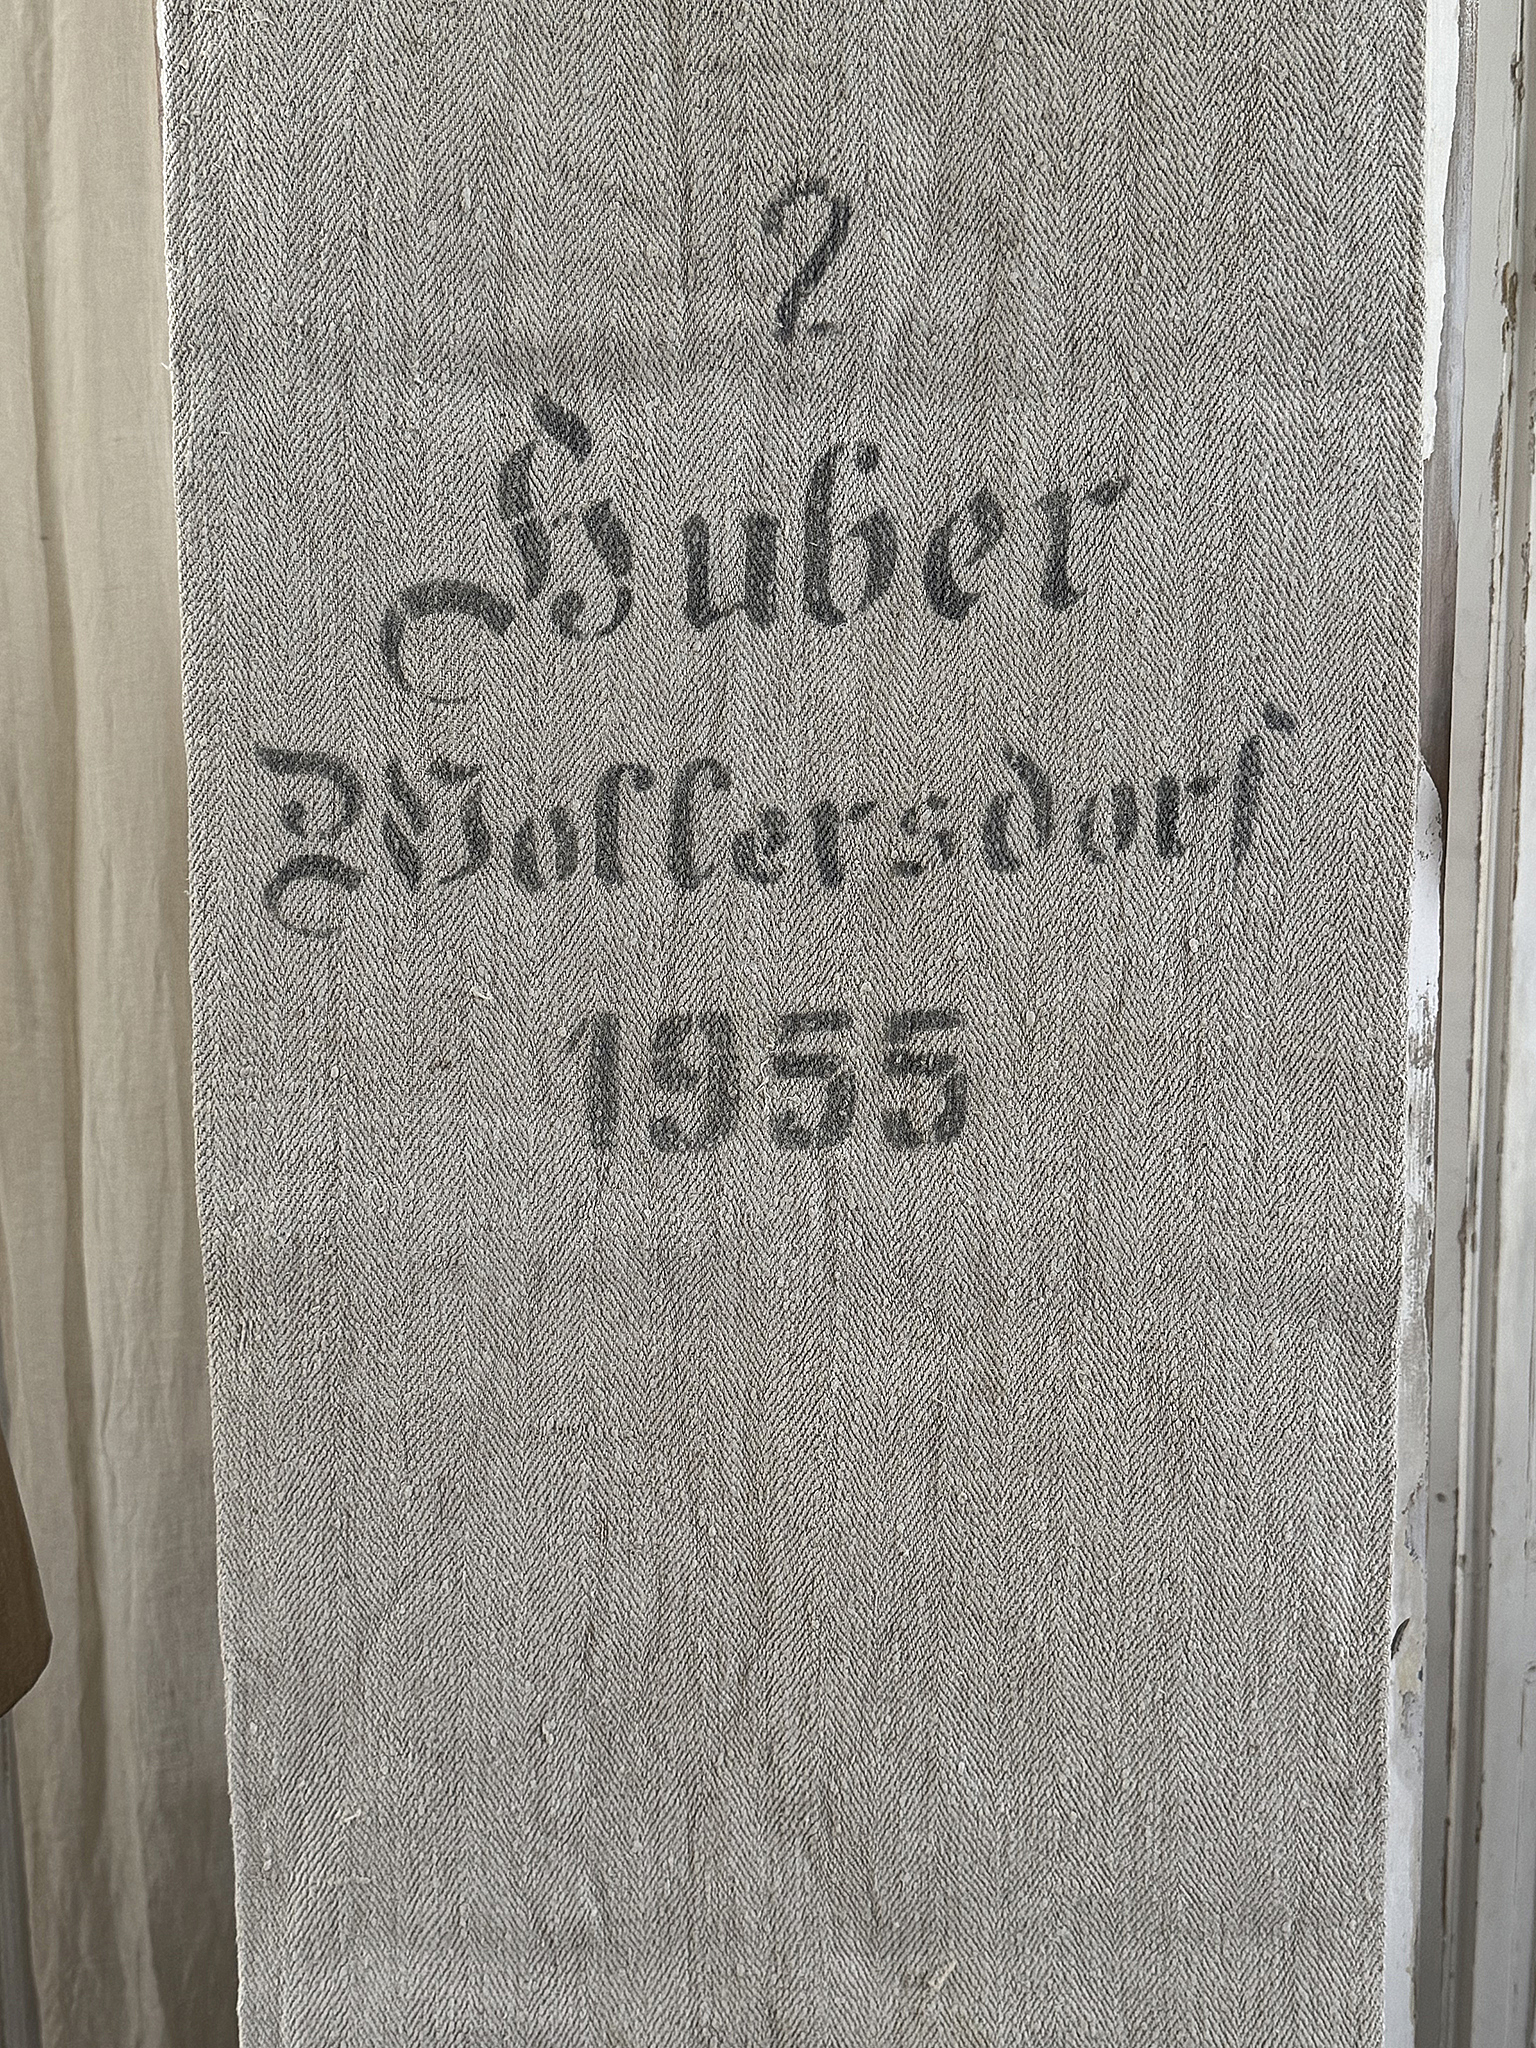 2
Huber
Wollersdorf
1955